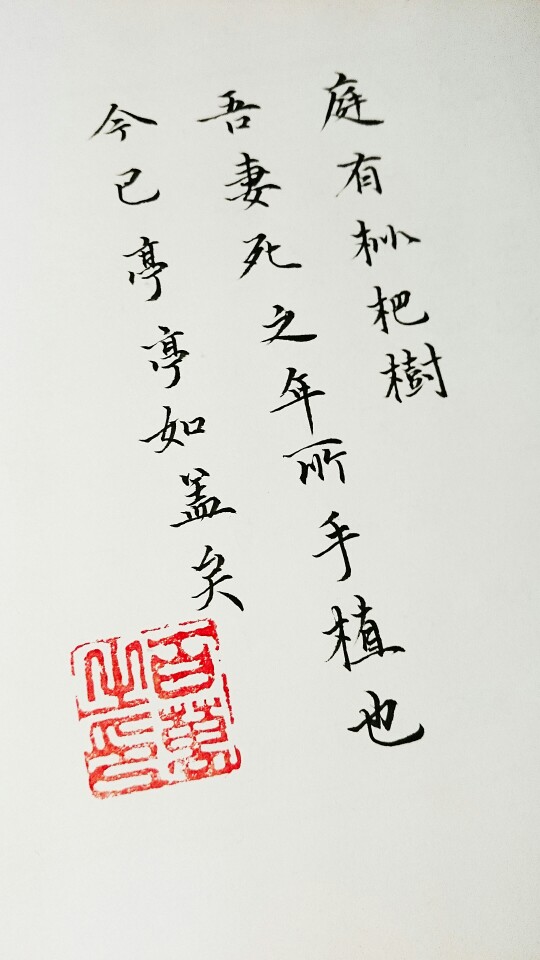 庭有枇杷樹
吾妻死之年所手植也
今已亭亭如盖矣
百萬之印